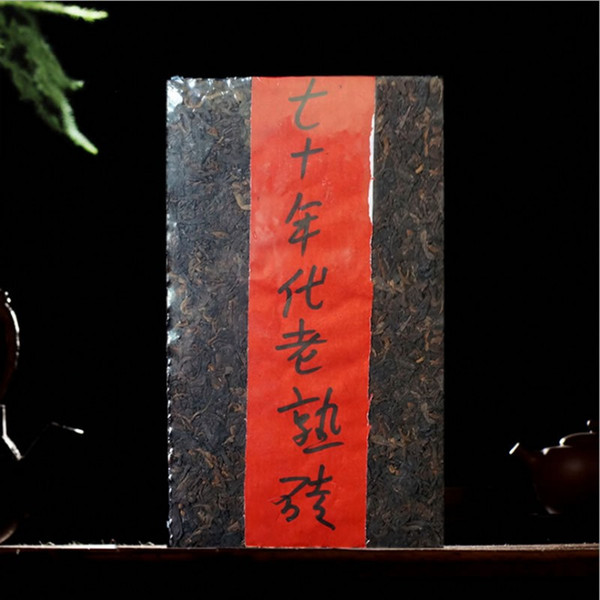 七十年代老熟砖